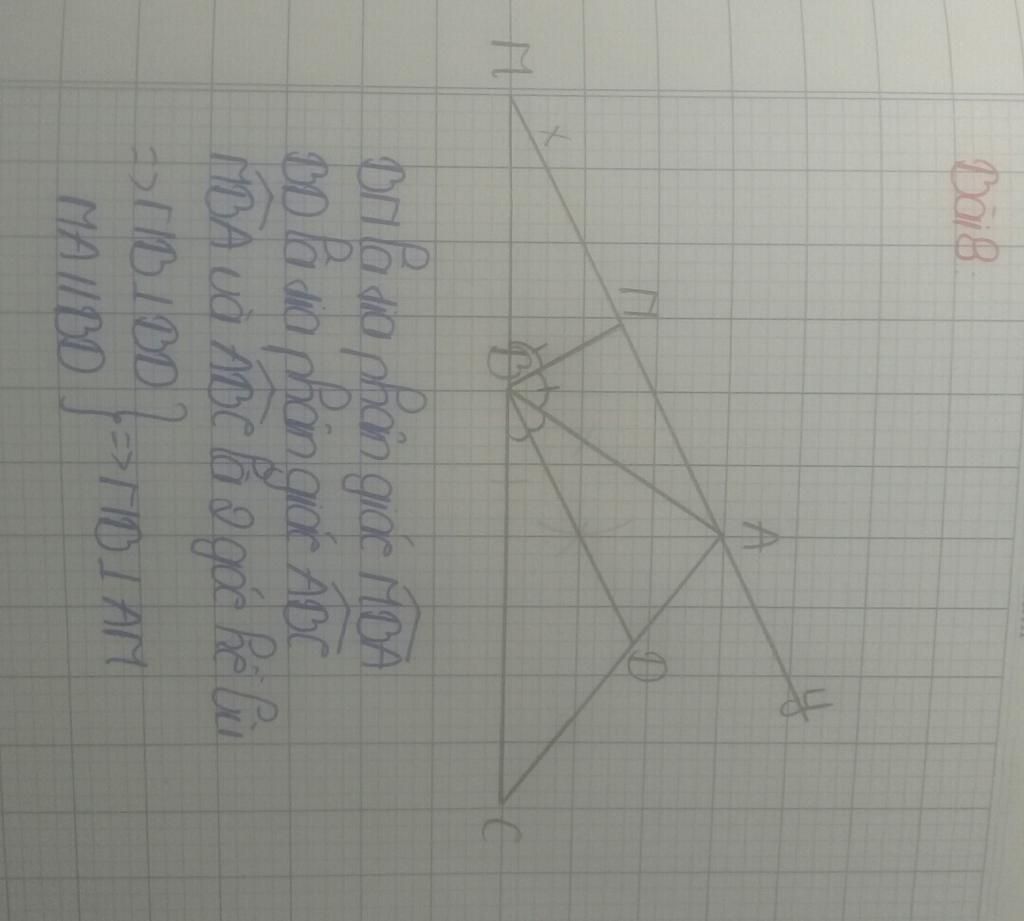 Bài 8:
M
x
N
A
y
B
D
C
BN là tia phân giác MBA
BD là tia phân giác ABC
MBA và ABC là 2 góc kề bù
=> NB ⊥ BD } => NB ⊥ AM
MA // BD